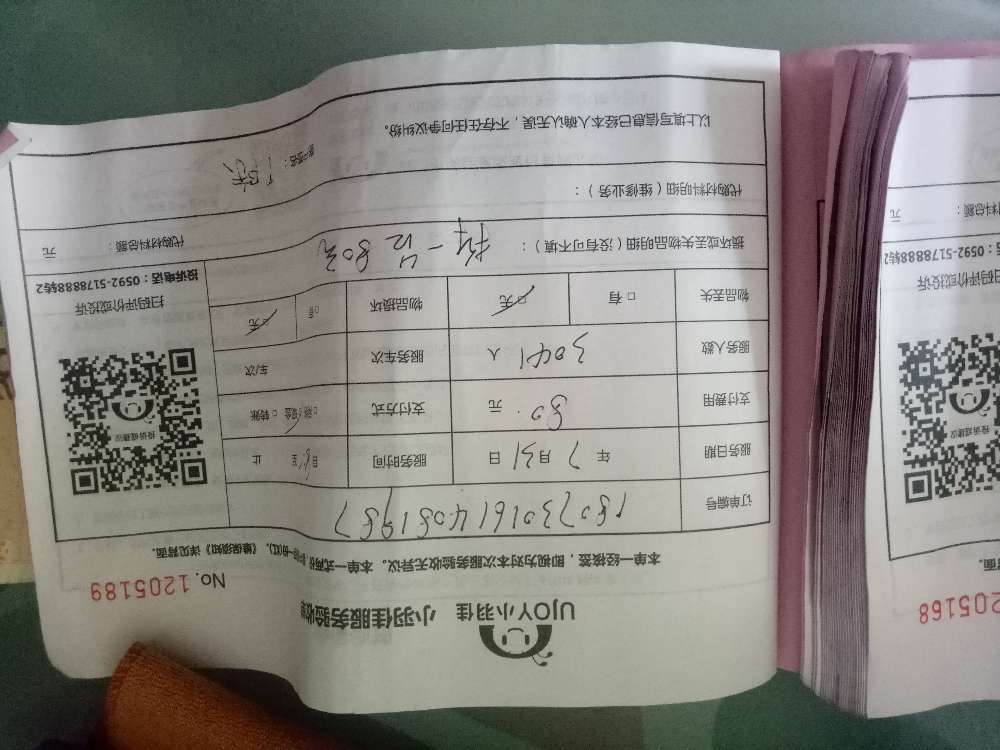 UJOY小羽佳 小羽佳服务验收
No.1205189
本单一经接签，即视为对本次服务验收无异议。本单一式两份
《维保须知》详见背面.
订单编号 180730161408198
服务日期 年 7 月 31 日 服务时间 至 止
支付费用 80. 元 支付方式 □转账
服务人数 人 服务车次 车次
物品丢失 □有 □无 物品损坏 □无
投诉或建议
扫码评价或投诉
投诉电话：0592-5178888转2
损坏或丢失物品明细（没有可不填）： 80元
代购材料明细（维修业务）：
代购材料总额： 元
以上填写信息已经本人确认无误，不存在任何争议纠纷。
客户签名：
205168
背面.
投诉或建议
扫码评价或投诉
0592-5178888转2
料总额： 元